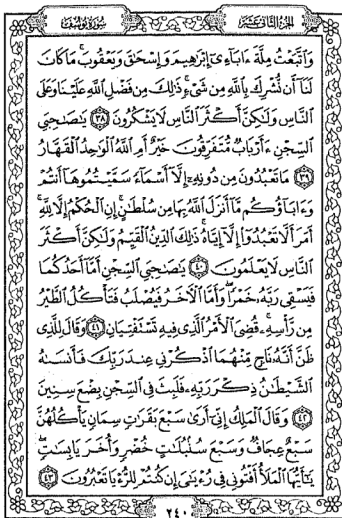 سورة يوسف
الجزء الثاني عشر
وَٱتَّبَعْتُ مِلَّةَ ءَابَآءِىٓ إِبْرَٰهِيمَ وَإِسْحَٰقَ وَيَعْقُوبَ مَا كَانَ
لَنَآ أَن نُّشْرِكَ بِٱللَّهِ مِن شَىْءٍ ذَٰلِكَ مِن فَضْلِ ٱللَّهِ عَلَيْنَا وَعَلَى
ٱلنَّاسِ وَلَٰكِنَّ أَكْثَرَ ٱلنَّاسِ لَا يَشْكُرُونَ ٣٨ يَٰصَٰحِبَىِ
ٱلسِّجْنِ ءَأَرْبَابٌ مُّتَفَرِّقُونَ خَيْرٌ أَمِ ٱللَّهُ ٱلْوَٰحِدُ ٱلْقَهَّارُ
٣٩ مَا تَعْبُدُونَ مِن دُونِهِۦٓ إِلَّآ أَسْمَآءً سَمَّيْتُمُوهَآ أَنتُمْ
وَءَابَآؤُكُم مَّآ أَنزَلَ ٱللَّهُ بِهَا مِن سُلْطَٰنٍ إِنِ ٱلْحُكْمُ إِلَّا لِلَّهِ
أَمَرَ أَلَّا تَعْبُدُوٓا۟ إِلَّآ إِيَّاهُ ذَٰلِكَ ٱلدِّينُ ٱلْقَيِّمُ وَلَٰكِنَّ أَكْثَرَ
ٱلنَّاسِ لَا يَعْلَمُونَ ٤٠ يَٰصَٰحِبَىِ ٱلسِّجْنِ أَمَّآ أَحَدُكُمَا
فَيَسْقِى رَبَّهُۥ خَمْرًا وَأَمَّا ٱلْءَاخَرُ فَيُصْلَبُ فَتَأْكُلُ ٱلطَّيْرُ
مِن رَّأْسِهِۦ قُضِىَ ٱلْأَمْرُ ٱلَّذِى فِيهِ تَسْتَفْتِيَانِ ٤١ وَقَالَ لِلَّذِى
ظَنَّ أَنَّهُۥ نَاجٍ مِّنْهُمَا ٱذْكُرْنِى عِندَ رَبِّكَ فَأَنسَىٰهُ
ٱلشَّيْطَٰنُ ذِكْرَ رَبِّهِۦ فَلَبِثَ فِى ٱلسِّجْنِ بِضْعَ سِنِينَ
٤٢ وَقَالَ ٱلْمَلِكُ إِنِّىٓ أَرَىٰ سَبْعَ بَقَرَٰتٍ سِمَانٍ يَأْكُلُهُنَّ
سَبْعٌ عِجَافٌ وَسَبْعَ سُنۢبُلَٰتٍ خُضْرٍ وَأُخَرَ يَابِسَٰتٍ
يَٰٓأَيُّهَا ٱلْمَلَأُ أَفْتُونِى فِى رُءْيَٰىَ إِن كُنتُمْ لِلرُّءْيَا تَعْبُرُونَ ٤٣
٢٤٠